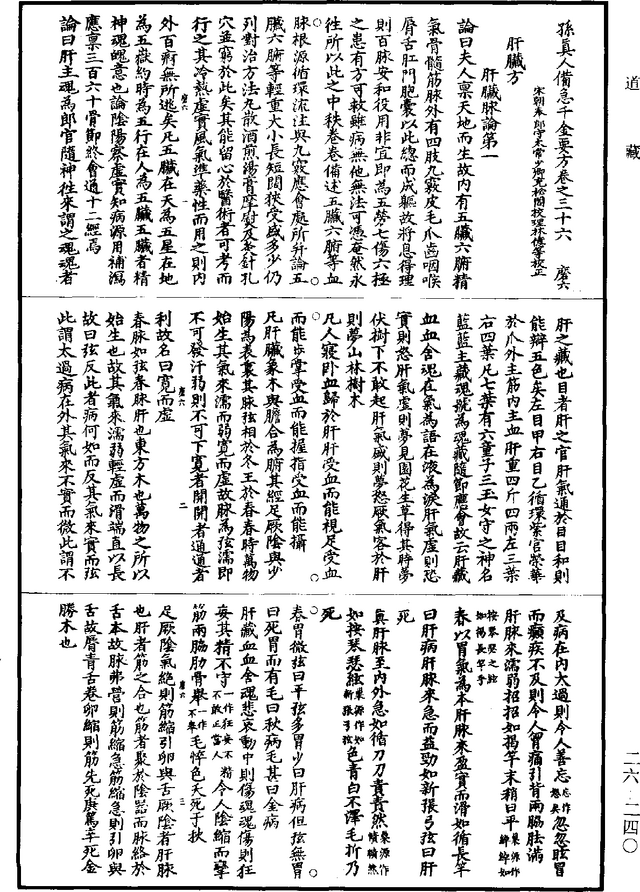 道藏
孫真人備急千金要方卷之三十六 磨六
宋朝奉郎守太常少卿充秘閣校理林億等校正
肝臟方
肝臟脉論第一
論曰夫人稟天地而生故內有五臟六腑精
氣骨髓筋脉外有四肢九竅皮毛爪齒咽喉
脣舌肛門胞囊以此總而成軀故將息得理
則百脉安和役用非宜即為五勞七傷六極
之患有方可救雖病無他無法可憑奄然永
往所以此之中秩卷卷備述五臟六腑等血
脉根源循環流注與九竅應會處所并論五
臟六腑等輕重大小長短闊狹受盛多少仍
列對治方法丸散酒煎湯膏摩熨及灸針孔
穴並窮於此矣其能留心於醫術者可考而
行之其冷熱虛實風氣準藥性而用之則內
磨六 一
外百痾無所逃矣凡五臟在天為五星在地
為五嶽約時為五行在人為五臟五臟者精
神魂魄意也論陰陽察虛實知病源用補瀉
應稟三百六十骨節終會通十二經焉
論曰肝主魂為郎官隨神往來謂之魂魂者
肝之藏也目者肝之官肝氣通於目目和則
能辨五色矣左目甲右目乙循環紫宮榮華
於爪外主筋內主血肝重四斤四兩左三葉
右四葉凡七葉有六童子三玉女守之神名
藍藍主藏魂號為魂藏隨節應會故云肝藏
血血舍魂在氣為語在液為淚肝氣虛則恐
實則怒肝氣虛則夢見園花生草得其時夢
伏樹下不敢起肝氣盛則夢怒厥氣客於肝
則夢山林樹木
凡人寢臥血歸於肝肝受血而能視足受血
而能步掌受血而能握指受血而能攝
凡肝臟象木與膽合為腑其經足厥陰與少
陽為表裏其脉弦相於冬王於春春時萬物
始生其氣來濡而弱寬而虛故脉為弦濡即
不可發汗弱則不可下寬者開開者通通者
磨六 二
利故名曰寬而虛
春脉如弦春脉肝也東方木也萬物之所以
始生也故其氣來濡弱輕虛而滑端直以長
故曰弦反此者病何如而反其氣來實而弦
此謂太過病在外其氣來不實而微此謂不
及病在內太過則令人善忘忘作怒矣忽忽眩冒
而癲疾不及則令人胷痛引背兩脇胠滿
肝脉來濡弱招招如揭竿末梢曰平巢源作綽綽如
按琴瑟之絃如揭長竿
春以胃氣為本肝脉來盈實而滑如循長竿
曰肝病肝脉來急而益勁如新張弓弦曰肝
死
真肝脉至內外急如循刀刃賾賾然巢源作
如按琴瑟絃巢源作如新張弓弦色青白不澤毛折乃
死
春胃微弦曰平弦多胃少曰肝病但弦無胃
曰死胃而有毛曰秋病毛甚曰金病
肝藏血血舍魂悲哀動中則傷魂魂傷則狂
妄其精不守一作狂妄不精不敢正當人令人陰縮而攣
筋兩脇肋骨舉一作不舉毛悴色夭死于秋
磨六 三
足厥陰氣絕則筋縮引卵與舌厥陰者肝脉
也肝者筋之合也筋者聚於陰器而脉絡於
舌本故脉弗營則筋縮急筋縮急則引卵與
舌故脣青舌卷卵縮則筋先死庚篤辛死金
勝木也
二六-二四〇